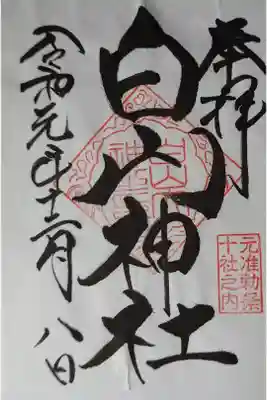 奉拝
白山神社
令和元年十二月八日
元准勅祭
十社之内